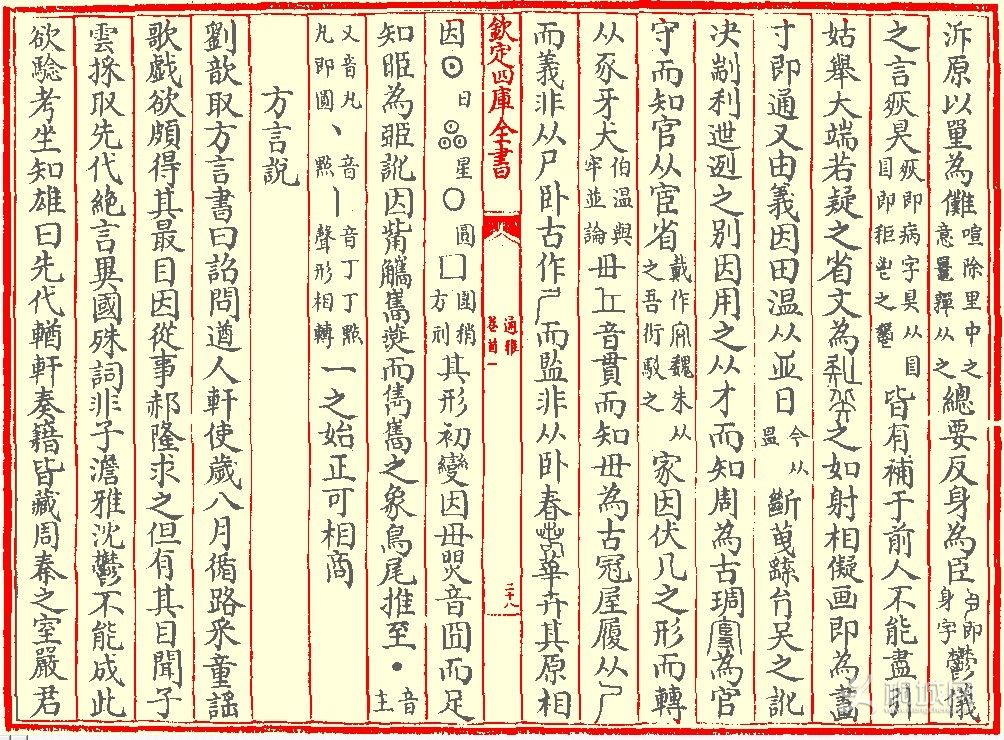 泝原以單為儺喧除里中之意从之總要反身為臣即身字鬱儀
之言皆有補于前人不能盡引
姑舉大端若疑之省文為之如射相儗画即為畫
寸即通又由義因田温从並日今从昷斷蹂台吴之訛
決利迣迾之別因用之从才而知周為古琱為官
守而知官从宦省戴作魏朱从之吾衍駁之家因伏几之形而轉
从豕牙犬伯温與牢並論毌音貫而知毌為古冠屋履从𠂆
而義非从尸卧古作而監非从卧春華卉其原相
欽定四庫全書
通雅
卷首一
二十八
因⊙日星○圓囗圍稍方刓其形初變因毌煚音囧而足
知為訛因觜觿雟而雋雟之象鳥尾推至•音主
又音丸丸即圓丶音點丨音丁丁點聲形相轉一之始正可相商
方言說
劉歆取方言書曰詔問遒人軒使歲八月循路求童謡
歌戲欲頗得其最目因從事郝隆求之但有其目聞子
雲採取先代絶言異國殊詞非子澹雅沈鬱不能成此
欲驗考坐知雄曰先代輶軒奏籍皆藏周秦之室嚴君